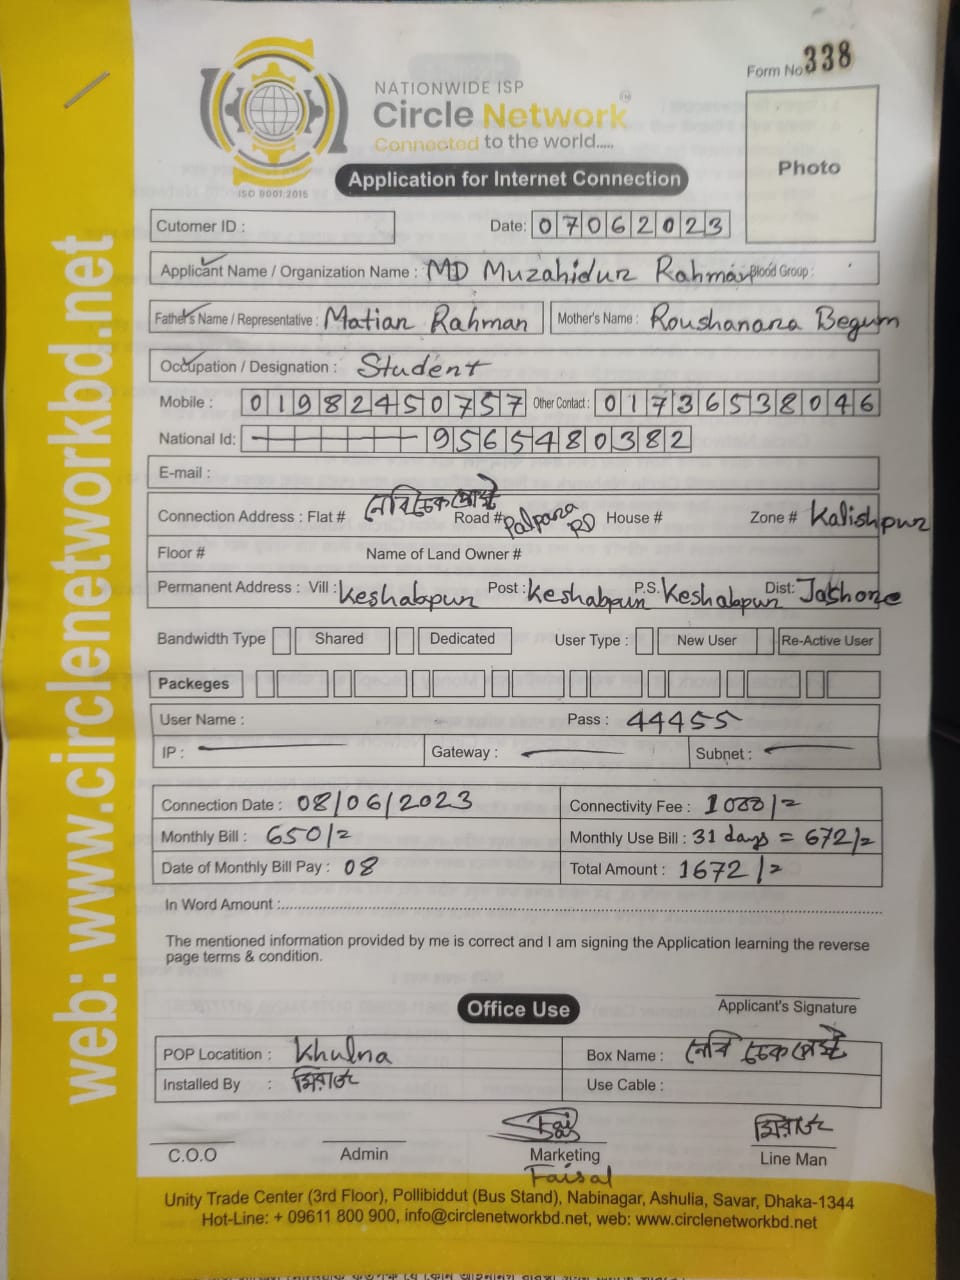 Form No 338
NATIONWIDE ISP
Circle Network
Connected to the world.....
ISO 9001:2015
Photo
Application for Internet Connection
Cutomer ID :
Date: 07062023
Applicant Name / Organization Name : MD Muzahidur Rahman Blood Group :
Father's Name / Representative : Matian Rahman Mother's Name : Roushanara Begum
Occupation / Designation : Student
Mobile : 01982450757 Other Contact : 01736538046
National Id: 9565480382
E-mail :
Connection Address : Flat # নেভি চেকপোস্ট Road # Palpara RD House # Zone # Kalishpur
Floor # Name of Land Owner #
Permanent Address : Vill : Keshabpur Post : Keshabpur P.S. Keshabpur Dist: Jashore
Bandwidth Type Shared Dedicated User Type : New User Re-Active User
Packeges
User Name : Pass : 44455
IP : Gateway : Subnet :
Connection Date : 08/06/2023 Connectivity Fee : 1000/=
Monthly Bill : 650/= Monthly Use Bill : 31 days = 672/=
Date of Monthly Bill Pay : 08 Total Amount : 1672/=
In Word Amount :
The mentioned information provided by me is correct and I am signing the Application learning the reverse
page terms & condition.
Applicant's Signature
Office Use
POP Locatition : Khulna Box Name : নেভি চেকপোস্ট
Installed By : মিরাজ Use Cable :
মিরাজ
C.O.O Admin Marketing Line Man
Faisal
Unity Trade Center (3rd Floor), Pollibiddut (Bus Stand), Nabinagar, Ashulia, Savar, Dhaka-1344
Hot-Line: + 09611 800 900, info@circlenetworkbd.net, web: www.circlenetworkbd.net
web: www.circlenetworkbd.net